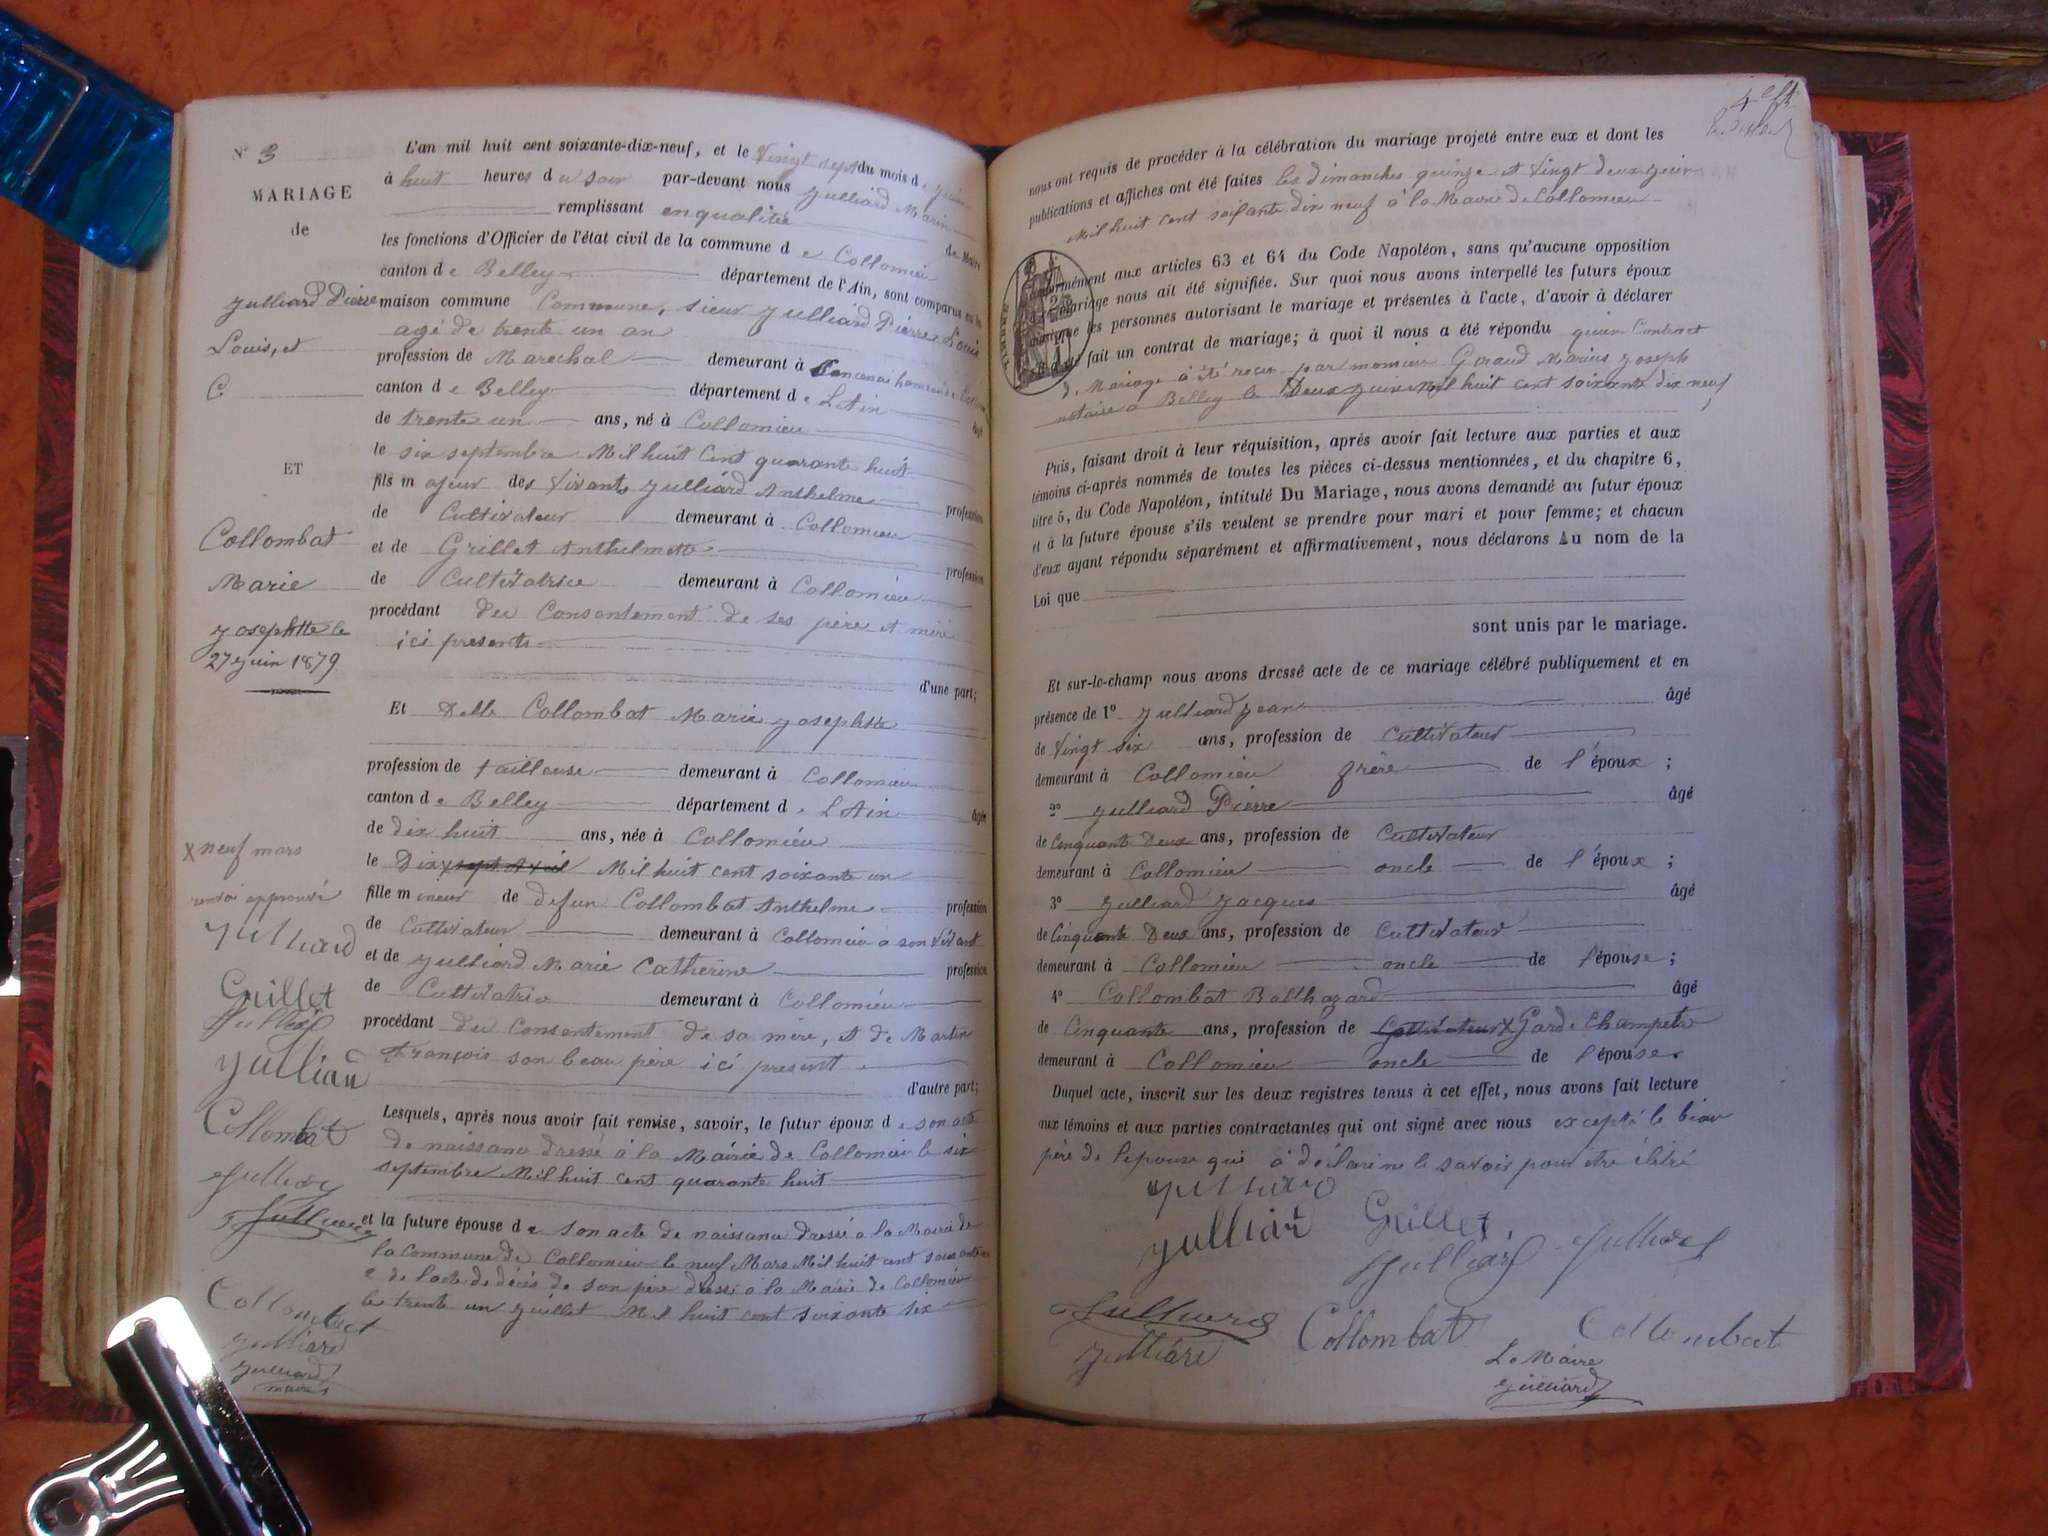 N° 3
MARIAGE
de
Julliard Pierre
Louis, et
C
ET
Collombat
Marie
Josephtte le
27 Juin 1879
X neuf mars
renvoi approuvé
Julliard
Grillet
Julliard
Julliard
Collombat
Julliard
Julliard
Collombat
Julliard
Julliard
maire
L'an mil huit cent soixante-dix-neuf, et le Vingt sept du mois de Juin
à huit heures du soir par-devant nous Julliard Marin
remplissant en qualitée de Maire
les fonctions d'Officier de l'état civil de la commune de Collomieu
canton de Belley département de l'Ain, sont comparus en la
maison commune Commune, sieur Julliard Pierre Louis
agé de trente un an
profession de Marechal demeurant à
canton de Belley département de LAin âgé
de trente un ans, né à Collomieu
le six septembre Mil huit Cent quarante huit
fils majeur des Vivants Julliard Anthelme profession
de Cultivateur demeurant à Collomieu
et de Grillet Anthelmette profession
de Cultivatrice demeurant à Collomieu
procédant du Consentement de ses père et mère
ici presents
d'une part;
Et Delle Collombat Marie Josephtte
profession de tailleuse demeurant à Collomieu
canton de Belley département de LAin âgée
de dix huit ans, née à Collomieu
le Dix X sept Avril Mil huit cent soixante un
fille mineur de defun Collombat Anthelme profession
de Cultivateur demeurant à Collomieu a son vivant
et de Julliard Marie Catherine profession
de Cultivatrice demeurant à Collomieu
procédant du Consentement de sa mère, et de Martin
François son beau père ici present
d'autre part;
Lesquels, après nous avoir fait remise, savoir, le futur époux de son acte
de naissance dressé à la Mairie de Collomieu le six
septembre Mil huit cent quarante huit
et la future épouse de son acte de naissance dressé a la Mairie de
la Commune de Collomieu le neuf Mars Mil huit cent soixante un
e de lacte de décès de son père dressé à la Mairie de Collomieu
le trente un Juillet Mil huit cent soixante six
nous ont requis de procéder à la célébration du mariage projeté entre eux et dont les
publications et affiches ont été faites les dimanches quinze et Vingt deux Juin
Mil huit cent soixante dix neuf à la Mairie de Collomieu
conformément aux articles 63 et 64 du Code Napoléon, sans qu'aucune opposition
au dit mariage nous ait été signifiée. Sur quoi nous avons interpellé les futurs époux
ainsi que les personnes autorisant le mariage et présentes à l'acte, d'avoir à déclarer
s'il a été fait un contrat de mariage; à quoi il nous a été répondu quun Contract
de Mariage à été reçu par monsieur Giraud Marius Joseph
notaire a Belley le Deux Juin Mil huit cent soixante dix neuf
Puis, faisant droit à leur réquisition, après avoir fait lecture aux parties et aux
témoins ci-après nommés de toutes les pièces ci-dessus mentionnées, et du chapitre 6,
titre 5, du Code Napoléon, intitulé Du Mariage, nous avons demandé au futur époux
et à la future épouse s'ils veulent se prendre pour mari et pour femme; et chacun
d'eux ayant répondu séparément et affirmativement, nous déclarons Au nom de la
Loi que
sont unis par le mariage.
Et sur-le-champ nous avons dressé acte de ce mariage célébré publiquement et en
présence de 1° Julliard Jean âgé
de Vingt six ans, profession de Cultivateur
demeurant à Collomieu frère de l'époux ;
2° Julliard Pierre âgé
de Cinquante Deux ans, profession de Cultivateur
demeurant à Collomieu oncle de l'époux ;
3° Julliard Jacques âgé
de Cinquante Deux ans, profession de Cultivateur
demeurant à Collomieu oncle de l'épouse ;
4° Collombat Balthazard âgé
de Cinquante ans, profession de Cultivateur X Garde Champetre
demeurant à Collomieu oncle de l'épouse.
Duquel acte, inscrit sur les deux registres tenus à cet effet, nous avons fait lecture
aux témoins et aux parties contractantes qui ont signé avec nous excepté le beau
père de lepouse qui à déclaré ne le savoir pour être iletré
Julliard
Julliard Grillet
Julliard Julliard
Julliard
Julliard Collombat Collombat
Le Maire
Julliard